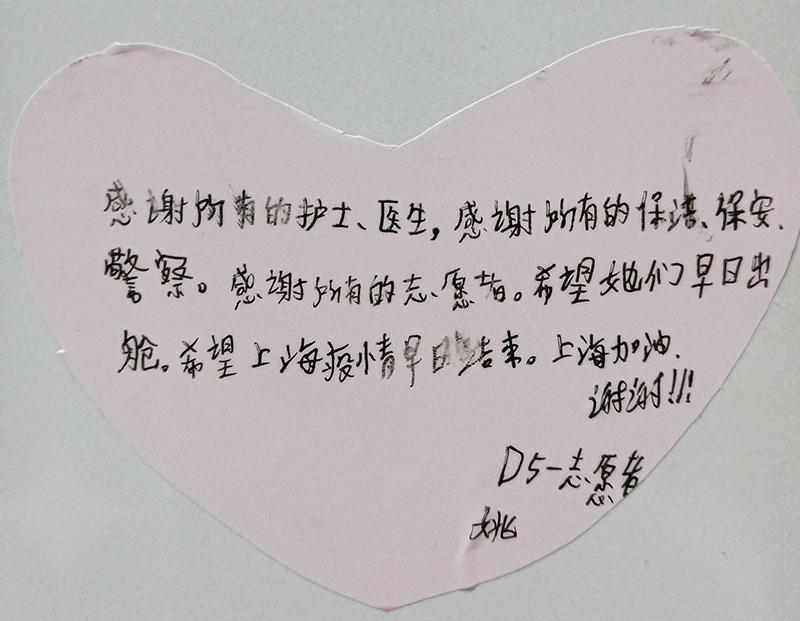 感谢所有的护士、医生，感谢所有的保洁、保安、
警察。感谢所有的志愿者。希望她们早日出
舱。希望上海疫情早日结束。上海加油.
谢谢!!!
D5-志愿者
姚